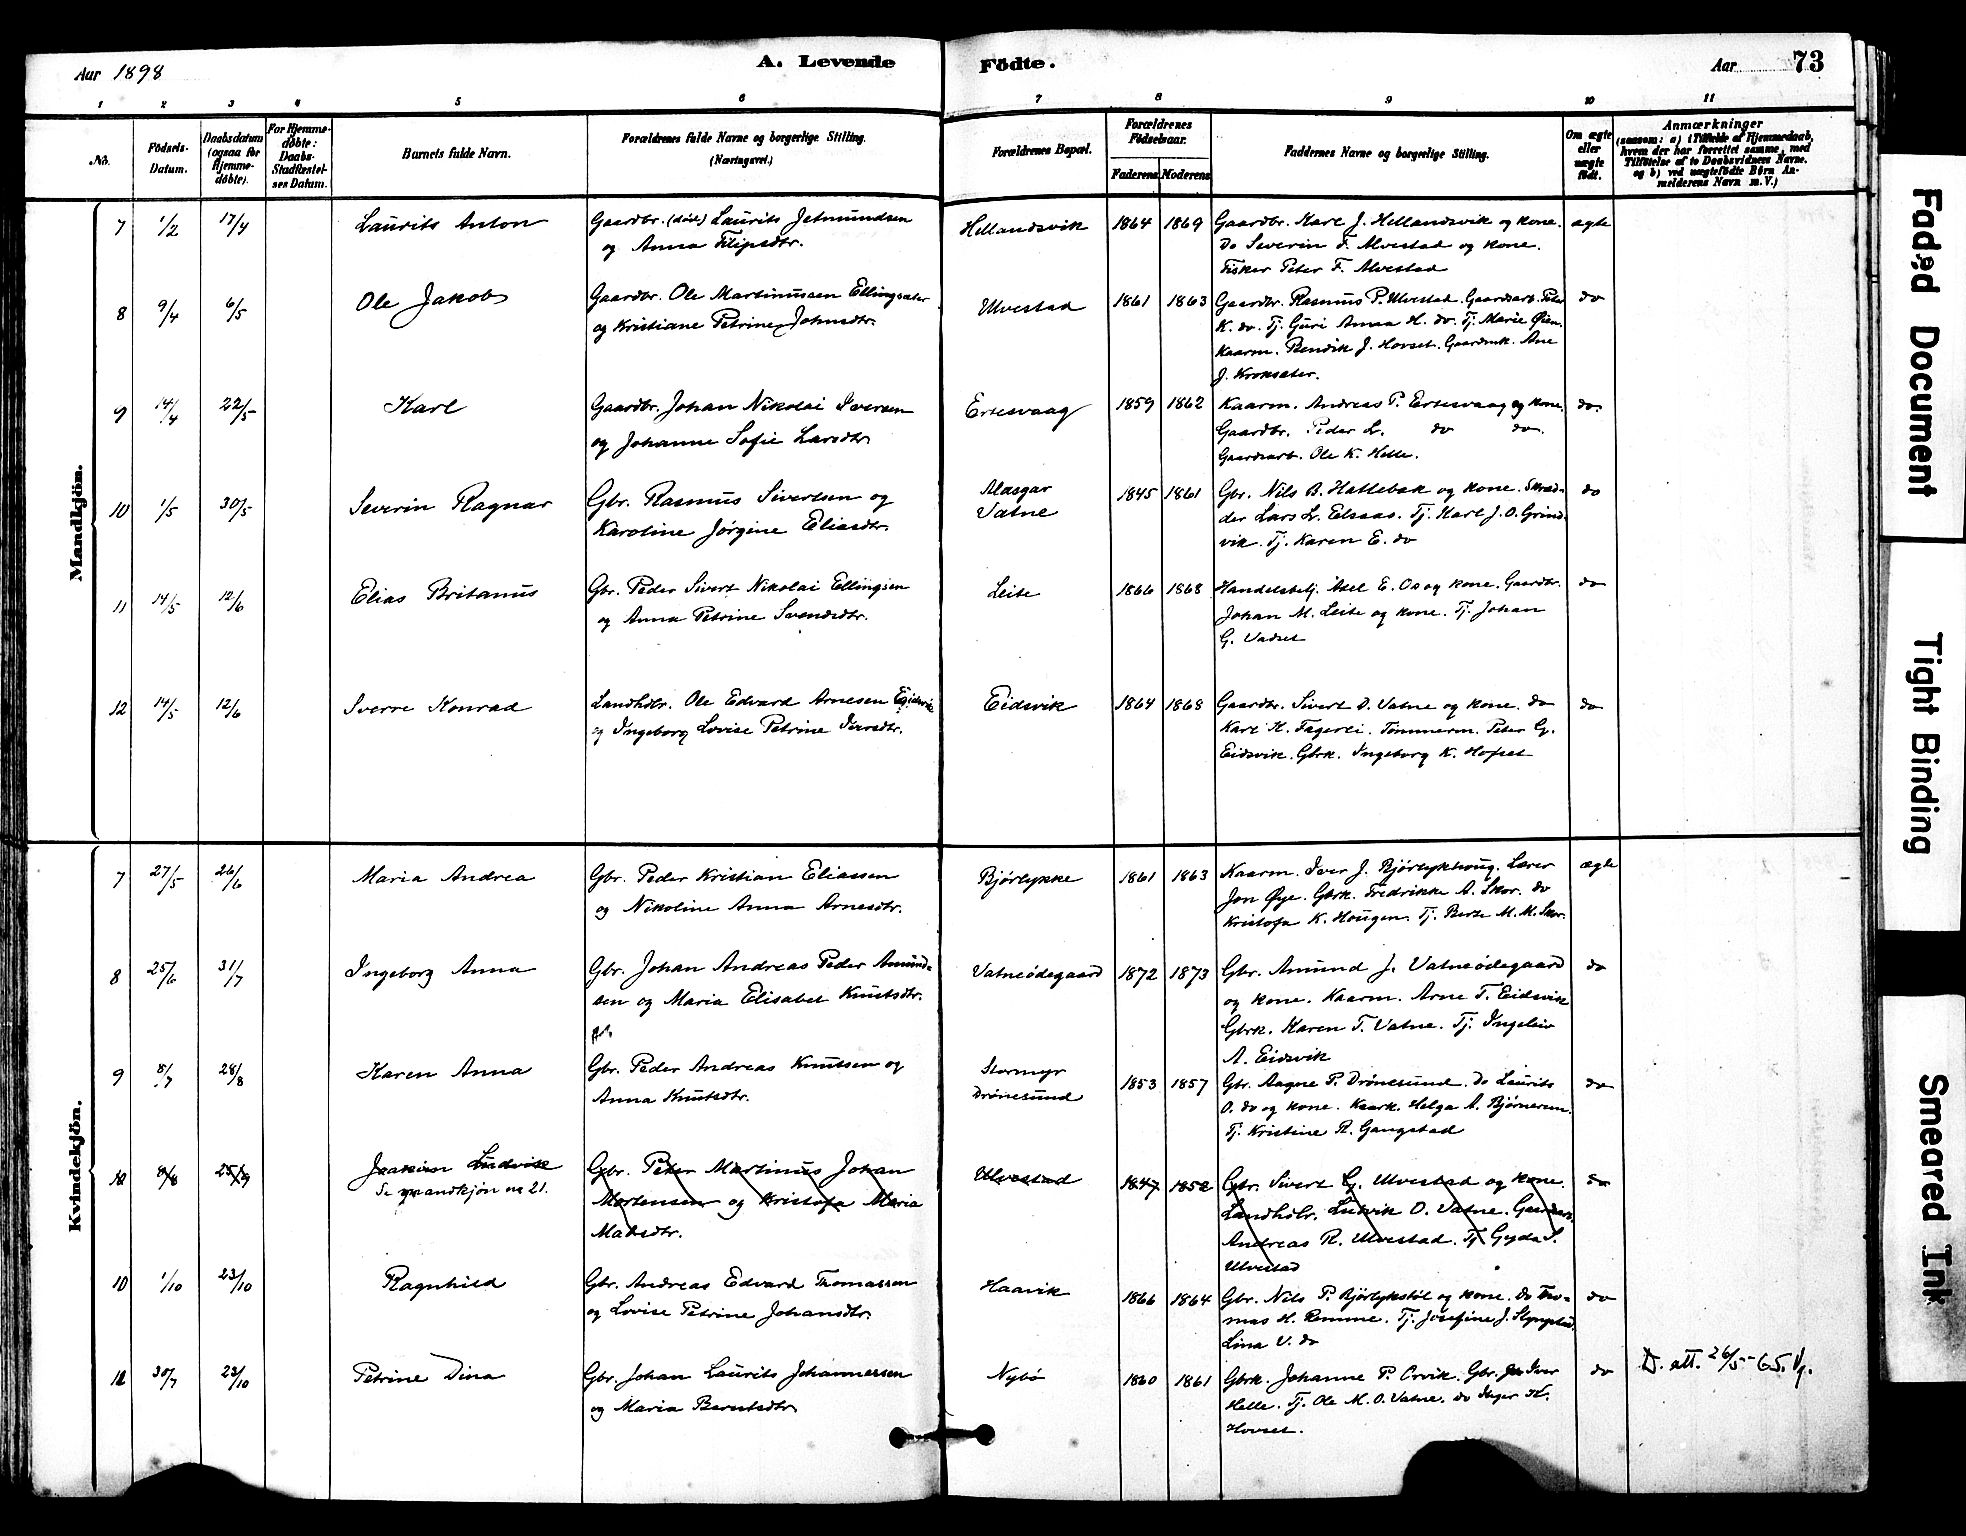 Aar 1898
A. Levende
Födte.
Aar
73
1 2 3 4 5 6 7 8 9 10 11
No.
Födsels-
Datum.
Daabsdatum
(ogsaa for
Hjemme-
döbte).
For Hjemme-
döbte:
Daabs-
Stadfæstel-
ses Datum.
Barnets fulde Navn.
Forældrenes fulde Navne og borgerlige Stilling.
(Næringsvei.)
Forældrenes Bopæl.
Forældrenes
Födselsaar.
Faderens
Moderens
Faddernes Navne og borgerlige Stilling.
Om ægte
eller
uægte
födt.
Anmærkninger
(saasom: a) i Tilfælde af Hjemmedaab,
hvem der har forrettet samme, med
Tilföielse af to Daabsvidners Navne.
og b) ved uægtefödte Börn An-
melderens Navn m. V.)
Mandkjön.
7 1/2 17/4 Laurits Anton
Gaardbr. (död) Laurits Jetmundsen
og Anna Filipsdtr.
Hellandsvik 1864 1869
Gaardbr. Karl J. Hellandsvik og kone.
do Severin F. Alvestad og kone.
Fisker Peter F. Alvestad
ægte
8 9/4 6/5 Ole Jakob
Gaardbr. Ole Martinussen Ellingsæter
og Kristiane Petrine Johnsdtr.
Ulvestad 1861 1863
Gaardbr. Rasmus P. Ulvestad. Gaardsarb. Peter
K. do. Tj. Guri Anna H. do. Tj. Marie Øien.
Kaarm. Bendik J. Hovset. Gaardmk. Ane
J. Kroksæter.
do
9 14/4 22/5 Karl
Gaardbr. Johan Nikolai Iversen
og Johanne Sofie Larsdtr
Ertesvaag 1859 1862
Kaarm. Andreas P. Ertesvaag og kone.
Gaardbr. Peder L. do do.
Gaardsarb. Ole K. Helle.
do.
10 1/5 30/5 Severin Ragnar
Gbr. Rasmus Sivertsen og
Karoline Jørgine Eliasdtr.
Vatne 1845 1861
Gbr. Nils B. Hattebak og kone. Skræd-
der Lars L. Elsaas. Tj. Karl J. O. Grind-
vik. Tj. Karen E. do
do
11 14/5 12/6 Elias Britanus
Gbr. Peder Sivert Nikolai Ellingsen
og Anna Petrine Svendsdtr.
Leite 1866 1868
Handelsbetj. Axel E. Os og kone. Gaardbr.
Johan M. Leite og kone. Tj. Johan
G. Vadset
do
12 14/5 12/6 Sverre Konrad
Landhdlr. Ole Edvard Arnesen Eidsvik
og Ingeborg Lovise Petrine Iversdtr.
Eidsvik 1864 1868
Gaardbr. Sivert D. Vatne og kone. do
Karl H. Fagerli. Tømmerm. Peter G.
Eidsvik. Gbrk. Ingeborg K. Hofset
do
Kvindekjön.
7 27/5 26/6 Maria Andrea
Gbr. Peder Kristian Eliassen
og Nikoline Anna Arnesdtr.
Bjørlykke 1861 1863
Kaarm. Iver J. Bjørlykhoug. Lærer
Jon Øye. Gbrk. Fredrikke A. Skor. do
Kristofa K. Hougen. Tj. Berte M. M. Skor.
ægte
8 25/6 31/7 Ingeborg Anna
Gbr. Johan Andreas Peder Amund-
sen og Maria Elisabet Knutsdtr.
Vatneødegaard 1872 1873
Gbr. Amund J. Vatneødegaard
og kone. Kaarm. Arne T. Eidsvik
Gbrk. Karen T. Vatne. Tj. Ingeleiv
A. Eidsvik
do
9 8/7 28/8 Karen Anna
Gbr. Peder Andreas Knutsen og
Anna Knutsdtr.
Stormyr
Drønesund 1853 1857
Gbr. Aagne P. Drønesund. do Laurits
O. do og kone. Kaark. Helga A. Bjørnerem.
Tj. Kristine R. Gangstad
do
10 8/8 25/9 Joakim Ludvik
Se mandkjøn no 21.
Gbr. Peter Martinus Johan
Mortensen og Kristofa Maria
Matsdtr.
Ulvestad 1847 1852
Gbr. Sivert G. Ulvestad og kone.
Landhdlr. Ludvik O. Vatne. Gaardsarb.
Andreas R. Ulvestad. Tj. Gyda S.
Ulvestad
do
10 1/10 23/10 Ragnhild
Gbr. Andreas Edvard Thomassen
og Lovise Petrine Johansdtr.
Haavik 1866 1864
Gbr. Nils P. Bjørlykstøl og kone. do Tho-
mas H. Remme. Tj. Josefine J. Slyngstad.
Lina V. do
do
11 30/7 23/10 Petrine Dina
Gbr. Johan Laurits Johannessen
og Maria Berntsdtr
Nybø 1860 1861
Gbrk. Johanne P. Orvik. Gbr. Iver
Helle. Tj. Ole M. O. Vatne. do Inger K.
Hovset.
do
D. att. 26/5-65. Vg.
Faded Document
Tight Binding
Smeared Ink